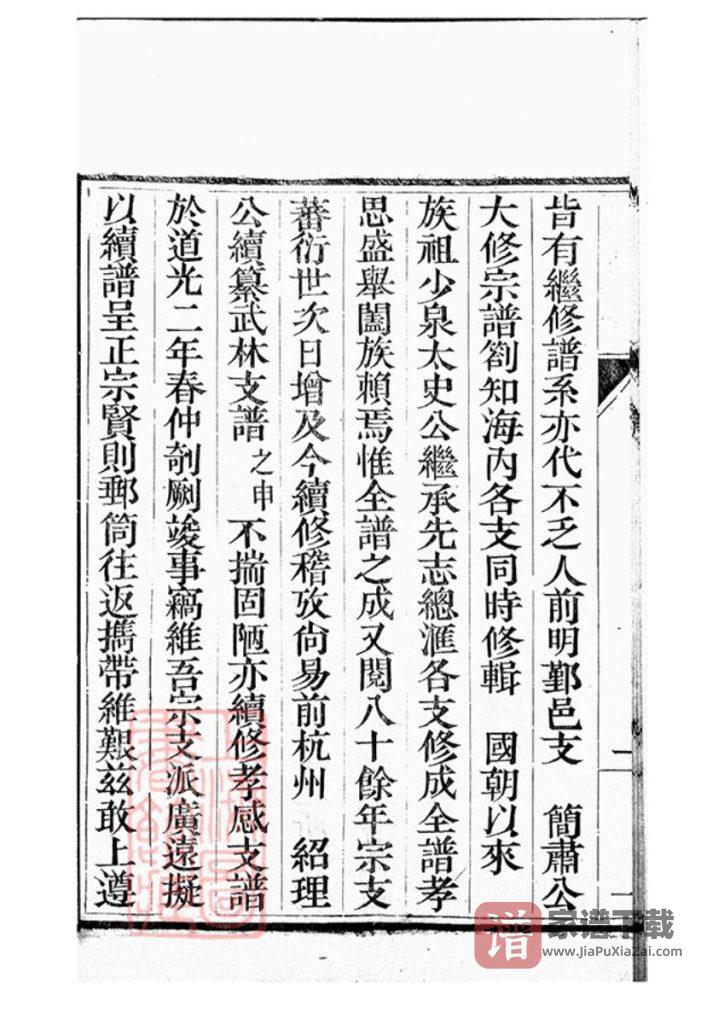 皆有繼修譜系亦代不乏人前明鄞邑支　簡肅公
大修宗譜劄知海內各支同時修輯　國朝以來
族祖少泉太史公繼承先志總滙各支修成全譜孝
思盛舉闔族賴焉惟全譜之成又閱八十餘年宗支
蕃衍世次日增及今續修稽攷尙易前杭州　紹理
公續纂武林支譜之申不揣固陋亦續修孝感支譜
於道光二年春仲剞劂竣事竊維吾宗支派廣遠擬
以續譜呈正宗賢則郵筒往返攜帶維艱茲敢上遵
譜 家谱下载
www.JiaPuXiaZai.com